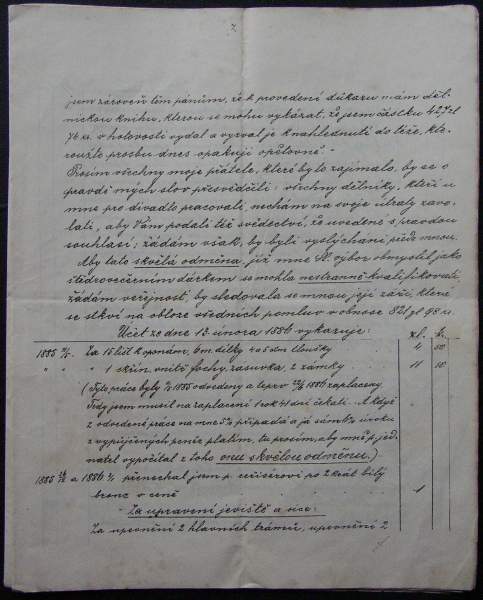 7
jsem zároveň těm pánům, že k provedení důkazu mám děl-
nickou knihu, kterou se mohu vykázat, že jsem částku 427 zl
76 kr. v hotovosti vydal a vyzval je k nahlednutí do téže, kte-
roužto prosbu dnes opakuji opětovně. -
Prosím všechny moje přátele, které by to zajímalo, by se o
pravdě mých slov přesvědčili: všechny dělníky, kteří u
mne pro divadlo pracovali, nechám na svoje útraty zavo-
lati, aby Vám podali též svědectví, že uvedené s pravdou
souhlasí; žádám však, by byli vyslýcháni přede mnou.
Aby tato skvělá odměna, již mně Sl. výbor obmyslil jako
štědrovečerním dárkem se mohla nestranně kvalifikovati,
žádám veřejnost, by sledovala se mnou její záři, které
se stkví na obloze všedních pomluv v obnose 821 zl 98 kr.
Účet ze dne 13 února 1886 vykazuje:
zl. kr.
1885 Za 15 lišt k oponám, 6 m. délky 4 a 5 dm tloušky 4 50
" " " 1 skříň vnitř fochy, zásuvka, 2 zámky 11 50
(Tyto práce byly 1885 odvedeny a teprv 1886 zaplaceny
Tedy jsem musil na zaplacení 1 rok 41 dní čekati. A když
z odvedené práce na mne 5% připadá a já sám 6% úroku
z vypůjčených peněz platím, tu prosím, aby mně p. jed-
natel vypočítal z toho onu skvělou odměnu.)
1885 a 1886 přenechal jsem p. režisérovi po 2krát bílý
bronz v ceně 1
Za upravení jeviště a sice:
Za upevnění 2 hlavních trámů, upevnění 2